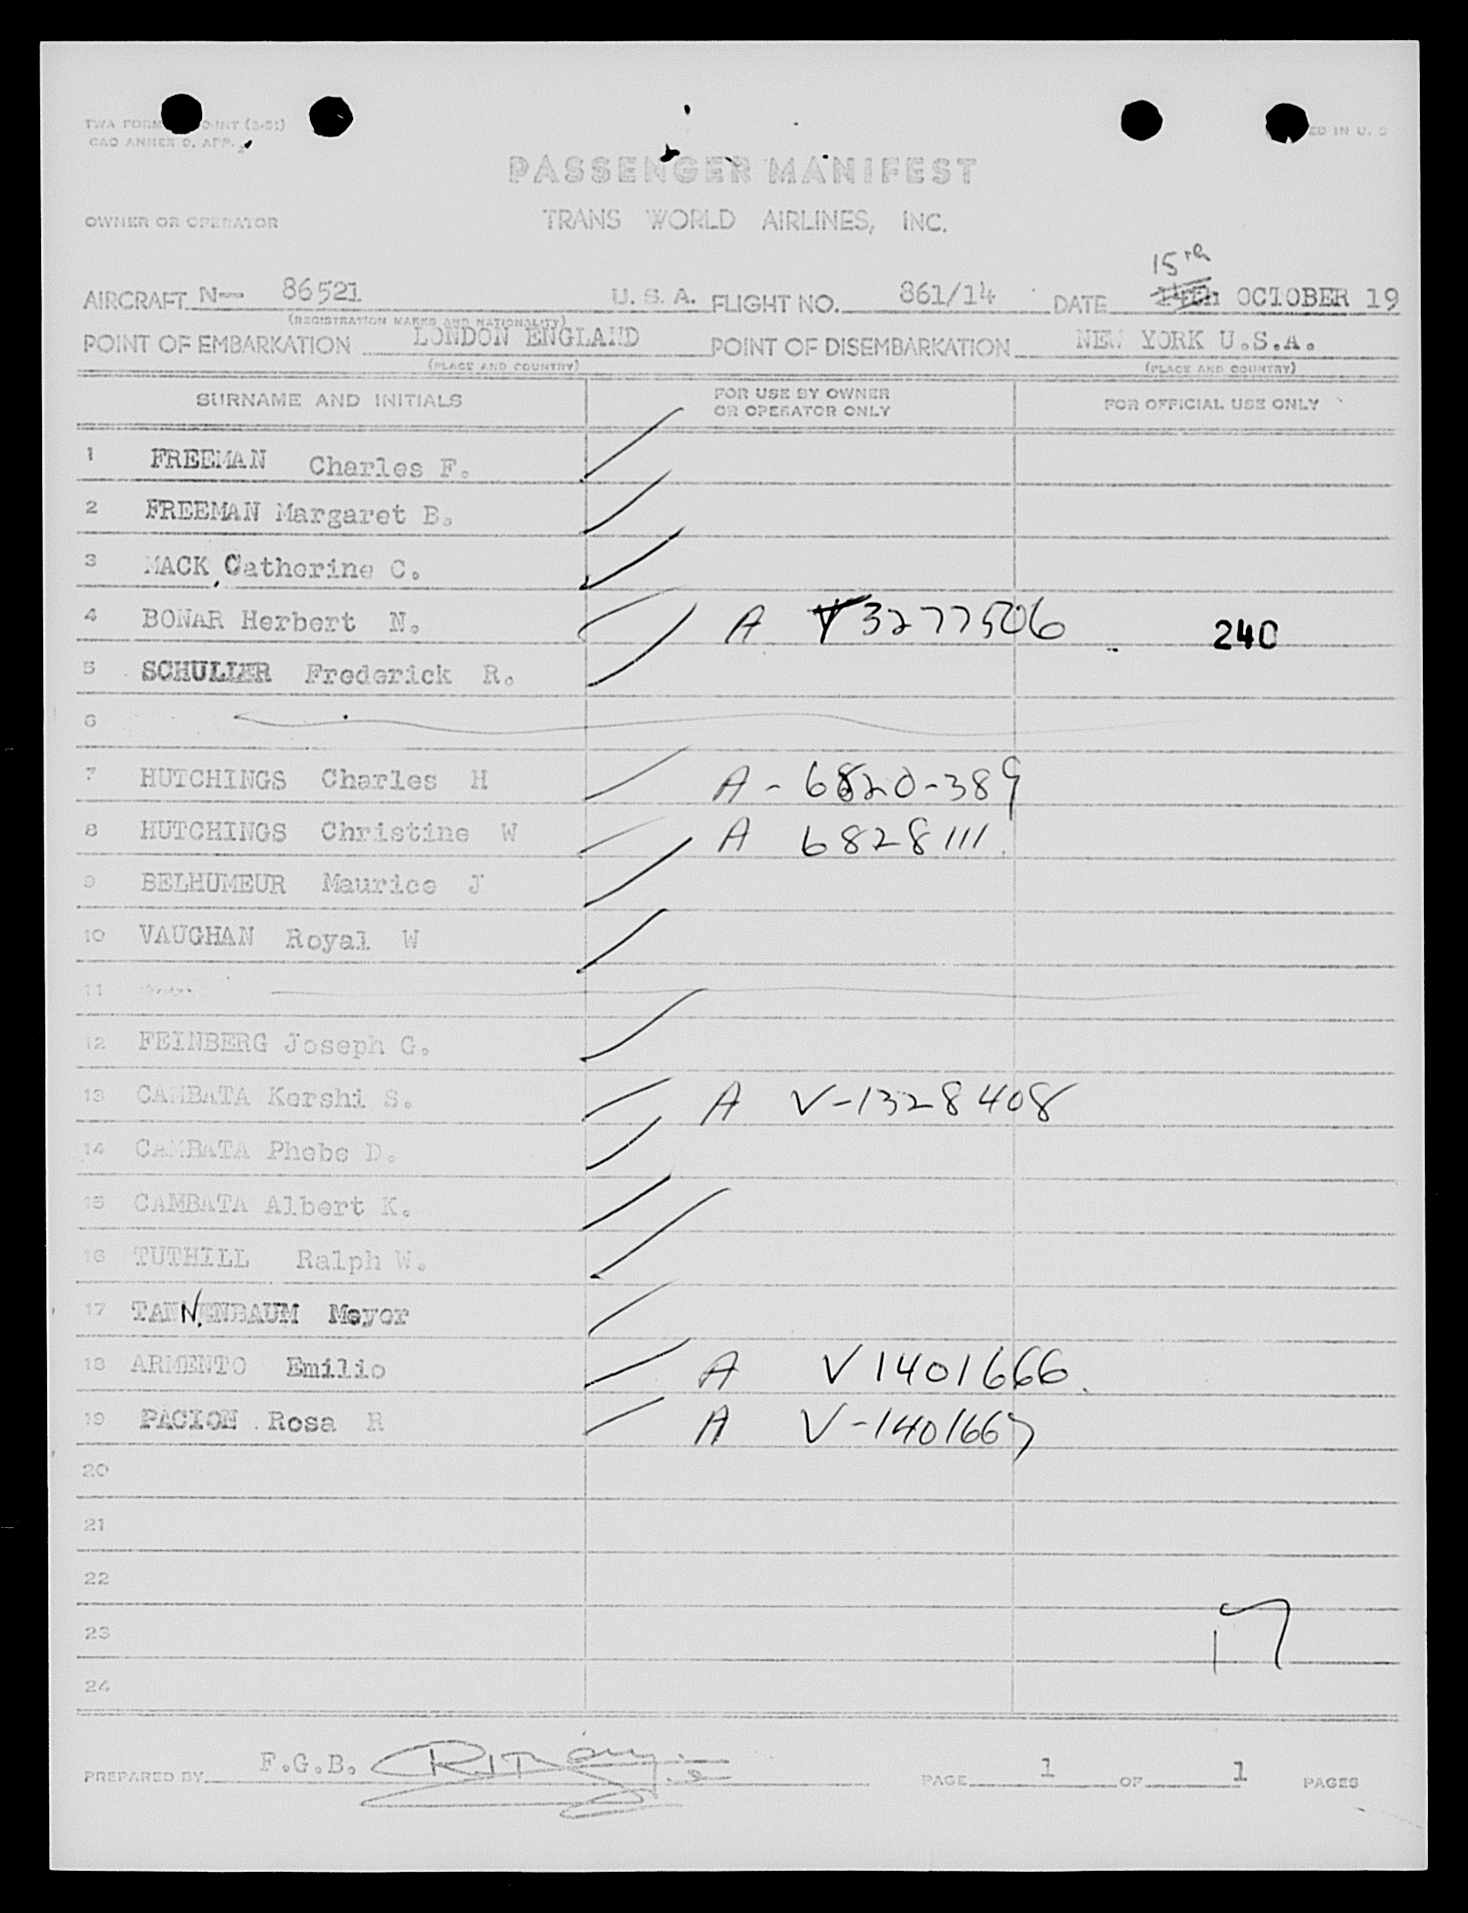 TWA FORM
CAO ANNEX 9, APP.
ED IN U. S
PASSENGER MANIFEST
OWNER OR OPERATOR TRANS WORLD AIRLINES, INC.
15th
AIRCRAFT N-- 86521 U. S. A. FLIGHT NO. 861/14 DATE 14th OCTOBER 19
(REGISTRATION MARKS AND NATIONALITY)
POINT OF EMBARKATION LONDON ENGLAND POINT OF DISEMBARKATION NEW YORK U.S.A.
(PLACE AND COUNTRY) (PLACE AND COUNTRY)
SURNAME AND INITIALS FOR USE BY OWNER OR OPERATOR ONLY FOR OFFICIAL USE ONLY
1 FREEMAN Charles F.
2 FREEMAN Margaret B.
3 MACK, Catherine C.
4 BONAR Herbert N. A V3277506 240
5 SCHULLER Frederick R.
6
7 HUTCHINGS Charles H A - 6820-389
8 HUTCHINGS Christine W A 6828111
9 BELHUMEUR Maurice J
10 VAUGHAN Royal W
11
12 FEINBERG Joseph G.
13 CAMBATA Kershi S. A V-1328408
14 CAMBATA Phebe D.
15 CAMBATA Albert K.
16 TUTHILL Ralph W.
17 TANNENBAUM Meyer
18 ARMENTO Emilio A V1401666
19 PACION Rosa R A V-1401667
20
21
22
23
17
24
PREPARED BY F.G.B. PAGE 1 OF 1 PAGES